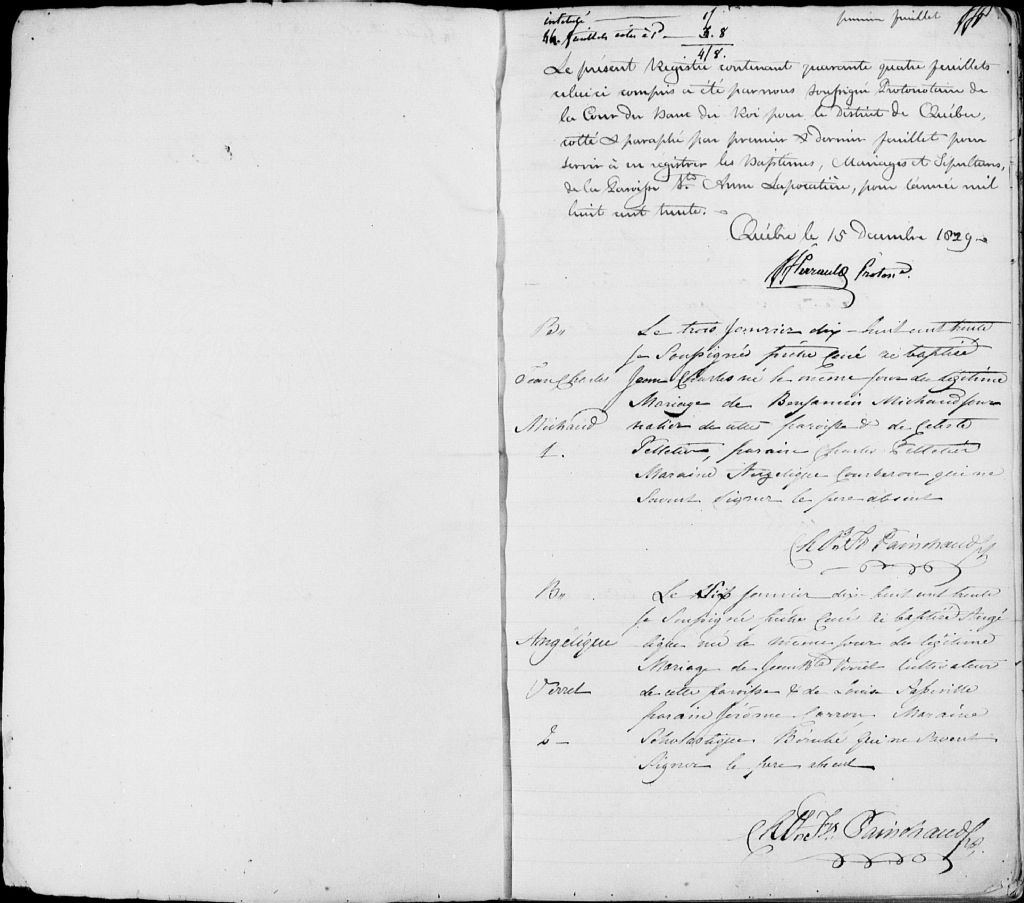 intitulé 1/
44 feuillets cotés à 1d 3. 8
4/8.
premier feuillet
Le présent Registre contenant quarante quatre feuillets
celui ci compris a été par nous soussigné Protonotaire de
la Cour du Banc du Roi pour le District de Québec,
cotté & paraphé par premier & dernier feuillet pour
servir à enregistrer les Baptêmes, Mariages et Sépultures,
de la Paroisse Ste. Anne Lapocatière, pour l'année mil
huit cent trente. —
Québec le 15 Decembre 1829
Perrault Proton.re
B.
Jean Charles
Michaud
1.
Le trois Janvier dix-huit cent trente
Je Soussigné prêtre Curé ai baptisé
Jean Charles né le même jour du légitime
Mariage de Benjamin Michaud jour
nalier de cette paroisse & de Celeste
Pelletier, parain Charles Pelletier
Maraine Angelique Courberon qui ne
Savent Signer le pere absent
Ch Frs Painchaud Ptre
B.
Angélique
Verret
2 —
Le Six Janvier dix-huit cent trente
Je Soussigné prêtre Curé ai baptisé Angé
lique née le même jour du légitime
Mariage de Jean Bte Verret Cultivateur
de cette paroisse & de Louise
parain Jérôme Carron Maraine
Scholastique Bérubé qui ne Savent
Signer le pere absent
Ch Frs Painchaud Ptre